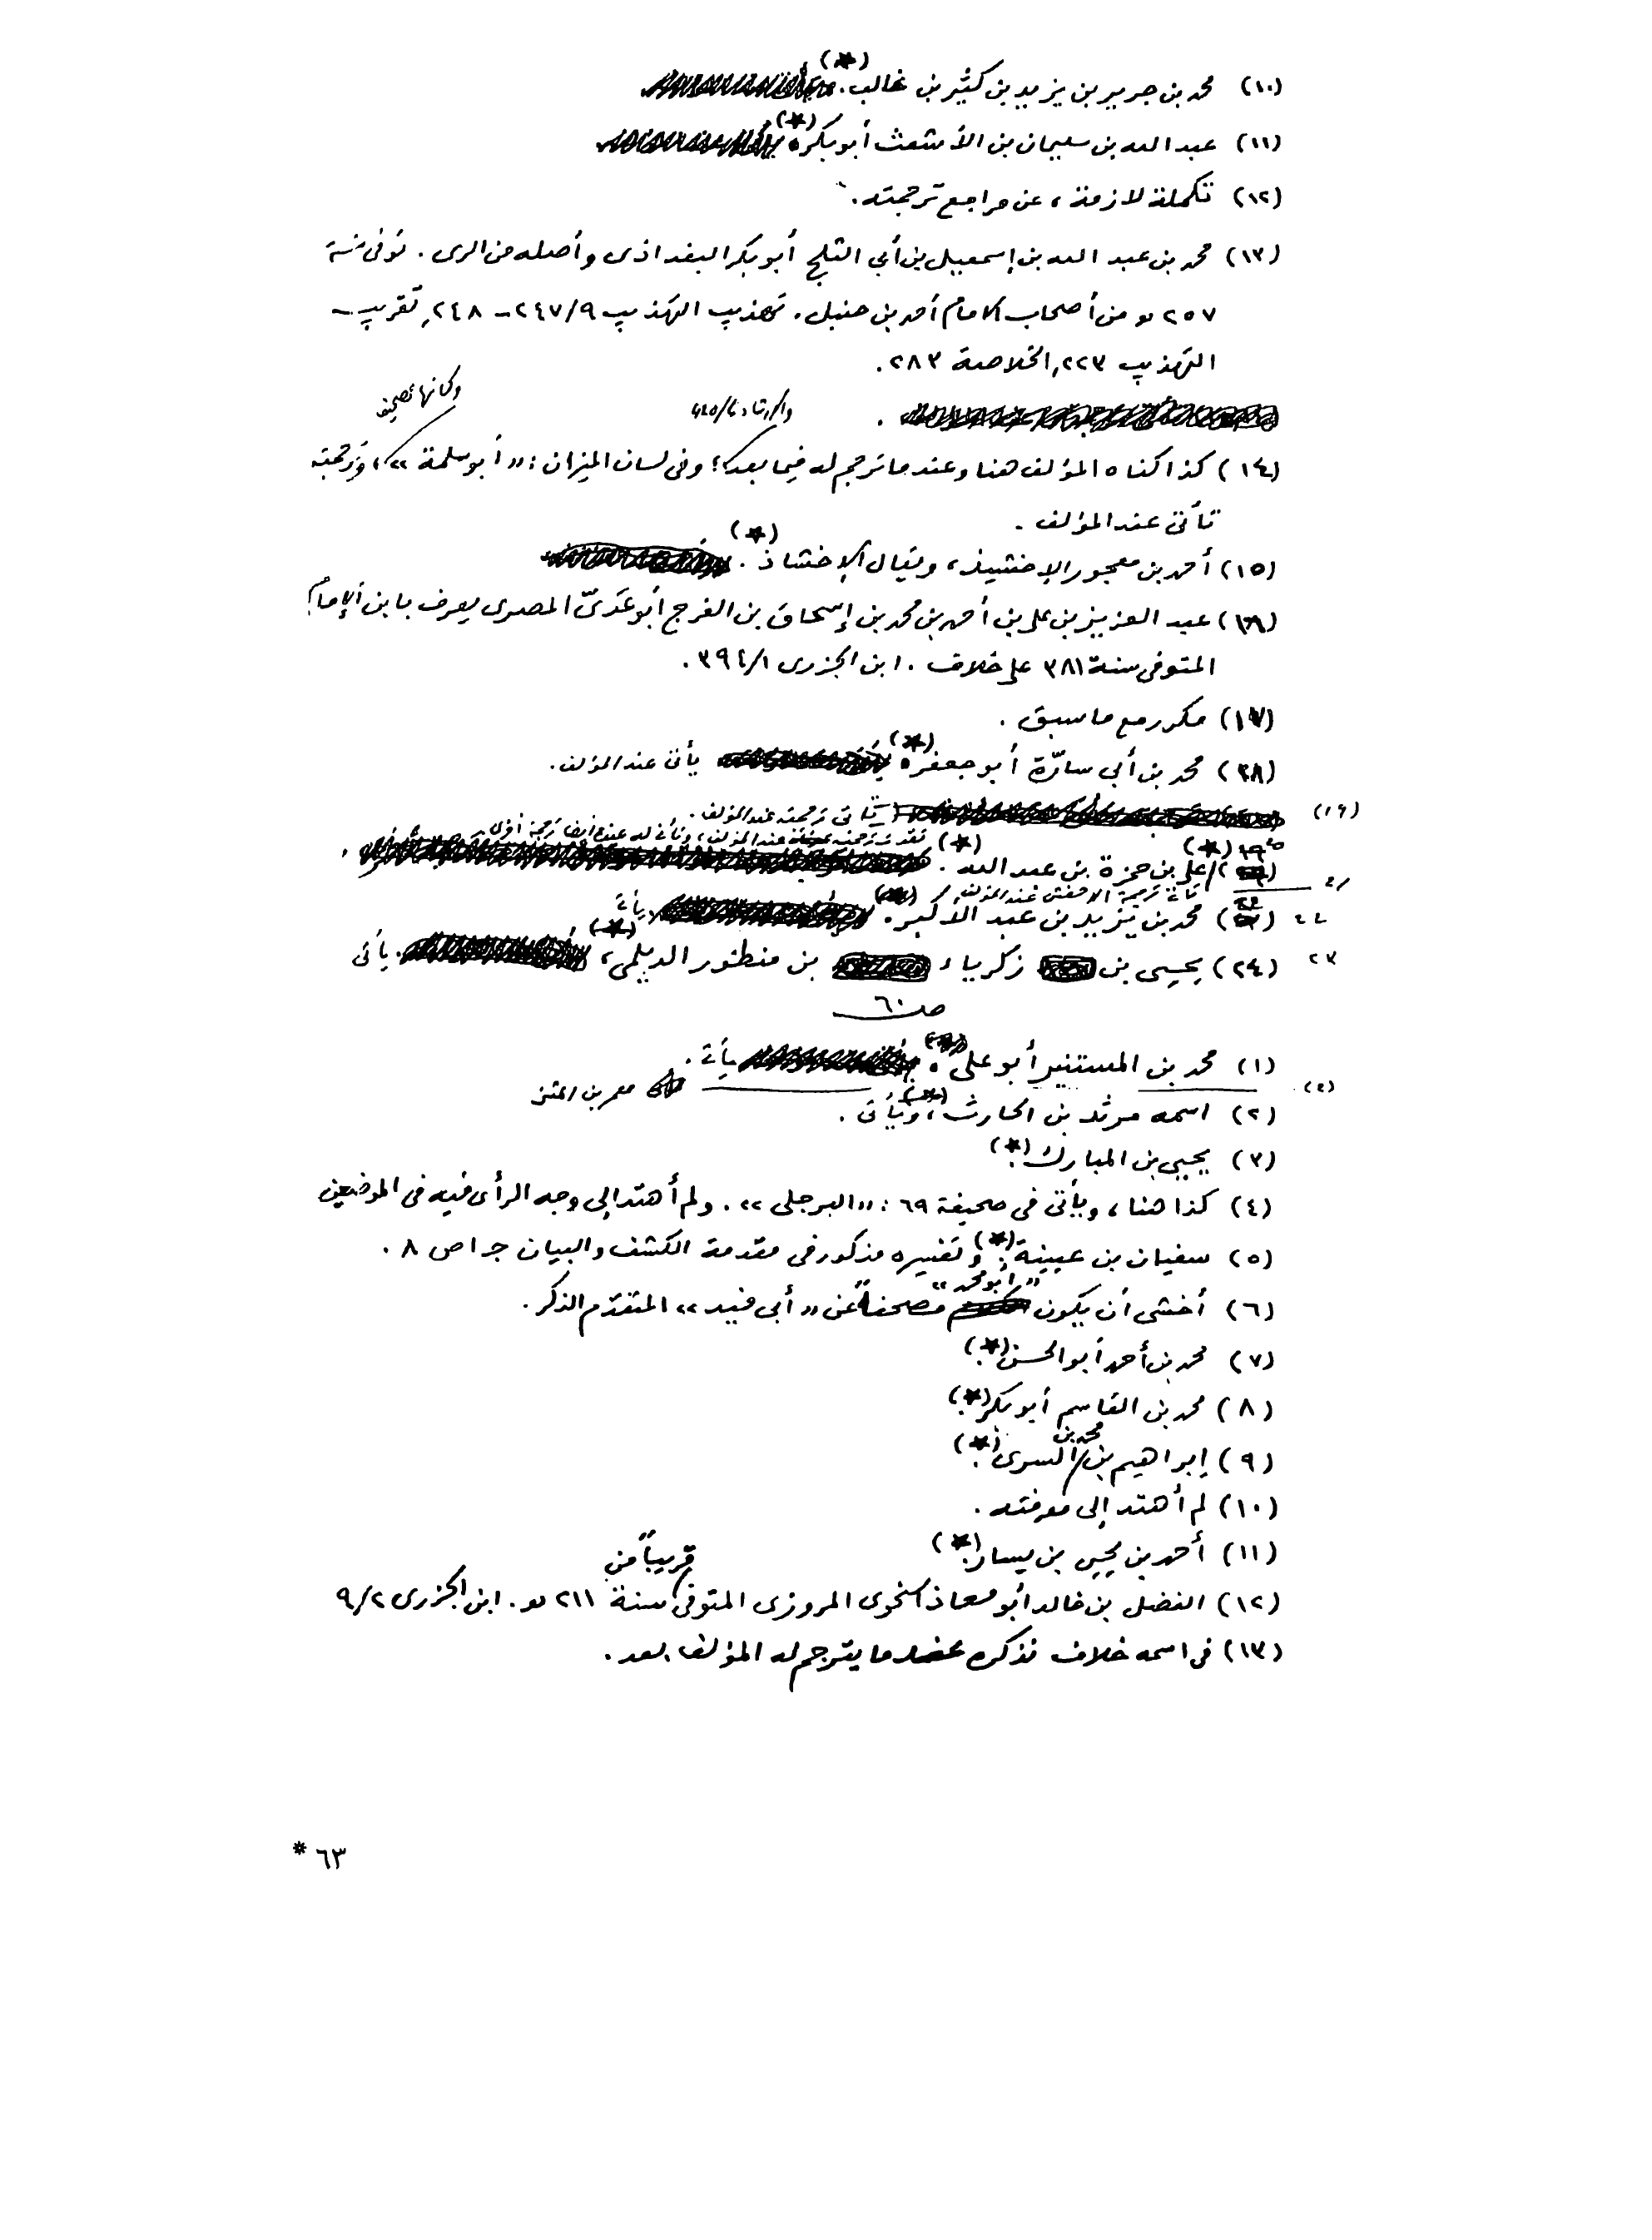 (١٠) محمد بن جرير بن يزيد بن كثير بن غالب. (*)
(١١) عبد الله بن سليمان بن الأشعث أبو بكر. (*)
(١٢) تكملة لازمة، عن مراجع ترجمته.
(١٣) محمد بن عبد الله بن إسمعيل بن أبي الثلج أبو بكر البغداذى وأصله من الرى. توفى سنة
٢٥٧ هـ من أصحاب الامام أحمد بن حنبل. تهذيب التهذيب ٢٤٧/٩ - ٢٤٨, تقريب
التهذيب ٢٢٣, الخلاصة ٢٨٣.
وكأنها تصحيف
والارشاد
(١٤) كذا كناه المؤلف هنا وعندما ترجم له فيما بعد؛ وفى لسان الميزان: "أبو سلمة"، وترجمته
تأتى عند المؤلف.
(١٥) أحمد بن معجور الإخشيذ، ويقال الإخشاذ. (*)
(١٦) عبد العزيز بن على بن أحمد بن محمد بن إسحاق بن الفرج أبو عَدىّ المصرى يعرف بابن الإمام
المتوفى سنة ٣٨١ على خلاف. ابن الجزرى ٣٩٤/١.
(١٧) مكرر مع ما سبق.
(١٨) محمد بن أبي سارّة أبو جعفر. (*) يأتى عند المؤلف.
(١٩) تأتى ترجمته عند المؤلف.
تقدمت ترجمته عند المؤلف، وتأتى له عنده أيضا ترجمة أخرى
(*) على بن حمزة بن عبد الله. (*)
٢١ تأتى ترجمة الاخفش عند المؤلف
٢٢ محمد بن يزيد بن عبد الأكبر. (*) يأتى
٢٣ (٢٤) يحيى بن زكرياء بن منظور الديلمى، (*) يأتى
صـ ٦٠
(١) محمد بن المستنير أبو على. يأتى.
(٢) معمر بن المثنى
(٢) اسمه مرثد بن الحارث، ويأتى.
(٣) يحيى بن المبارك. (*)
(٤) كذا هنا، ويأتى فى صحيفة ٦٩: "البرجلى". ولم أهتد إلى وجه الرأى فيه فى الموضعين
(٥) سفيان بن عيينة. (*) وتفسيره مذكور فى مقدمة الكشف والبيان جـ ١ ص ٨.
(٦) أخشى أن يكون "أبو محمد" مصحفاً عن "أبى فيد" المتقدم الذكر.
(٧) محمد بن أحمد أبو الحسن. (*)
(٨) محمد بن القاسم أبو بكر. (*)
(٩) إبراهيم بن محمد بن السرى. (*)
(١٠) لم أهتد إلى معرفته.
(١١) أحمد بن يحيى بن يسار. (*)
(١٢) الفضل بن خالد أبو معاذ النحوى المروزى المتوفى قريباً من سنة ٢١١ هـ. ابن الجزرى ٩/٢
(١٣) فى اسمه خلاف نذكره عندما يترجم له المؤلف بعد.
٦٣ *